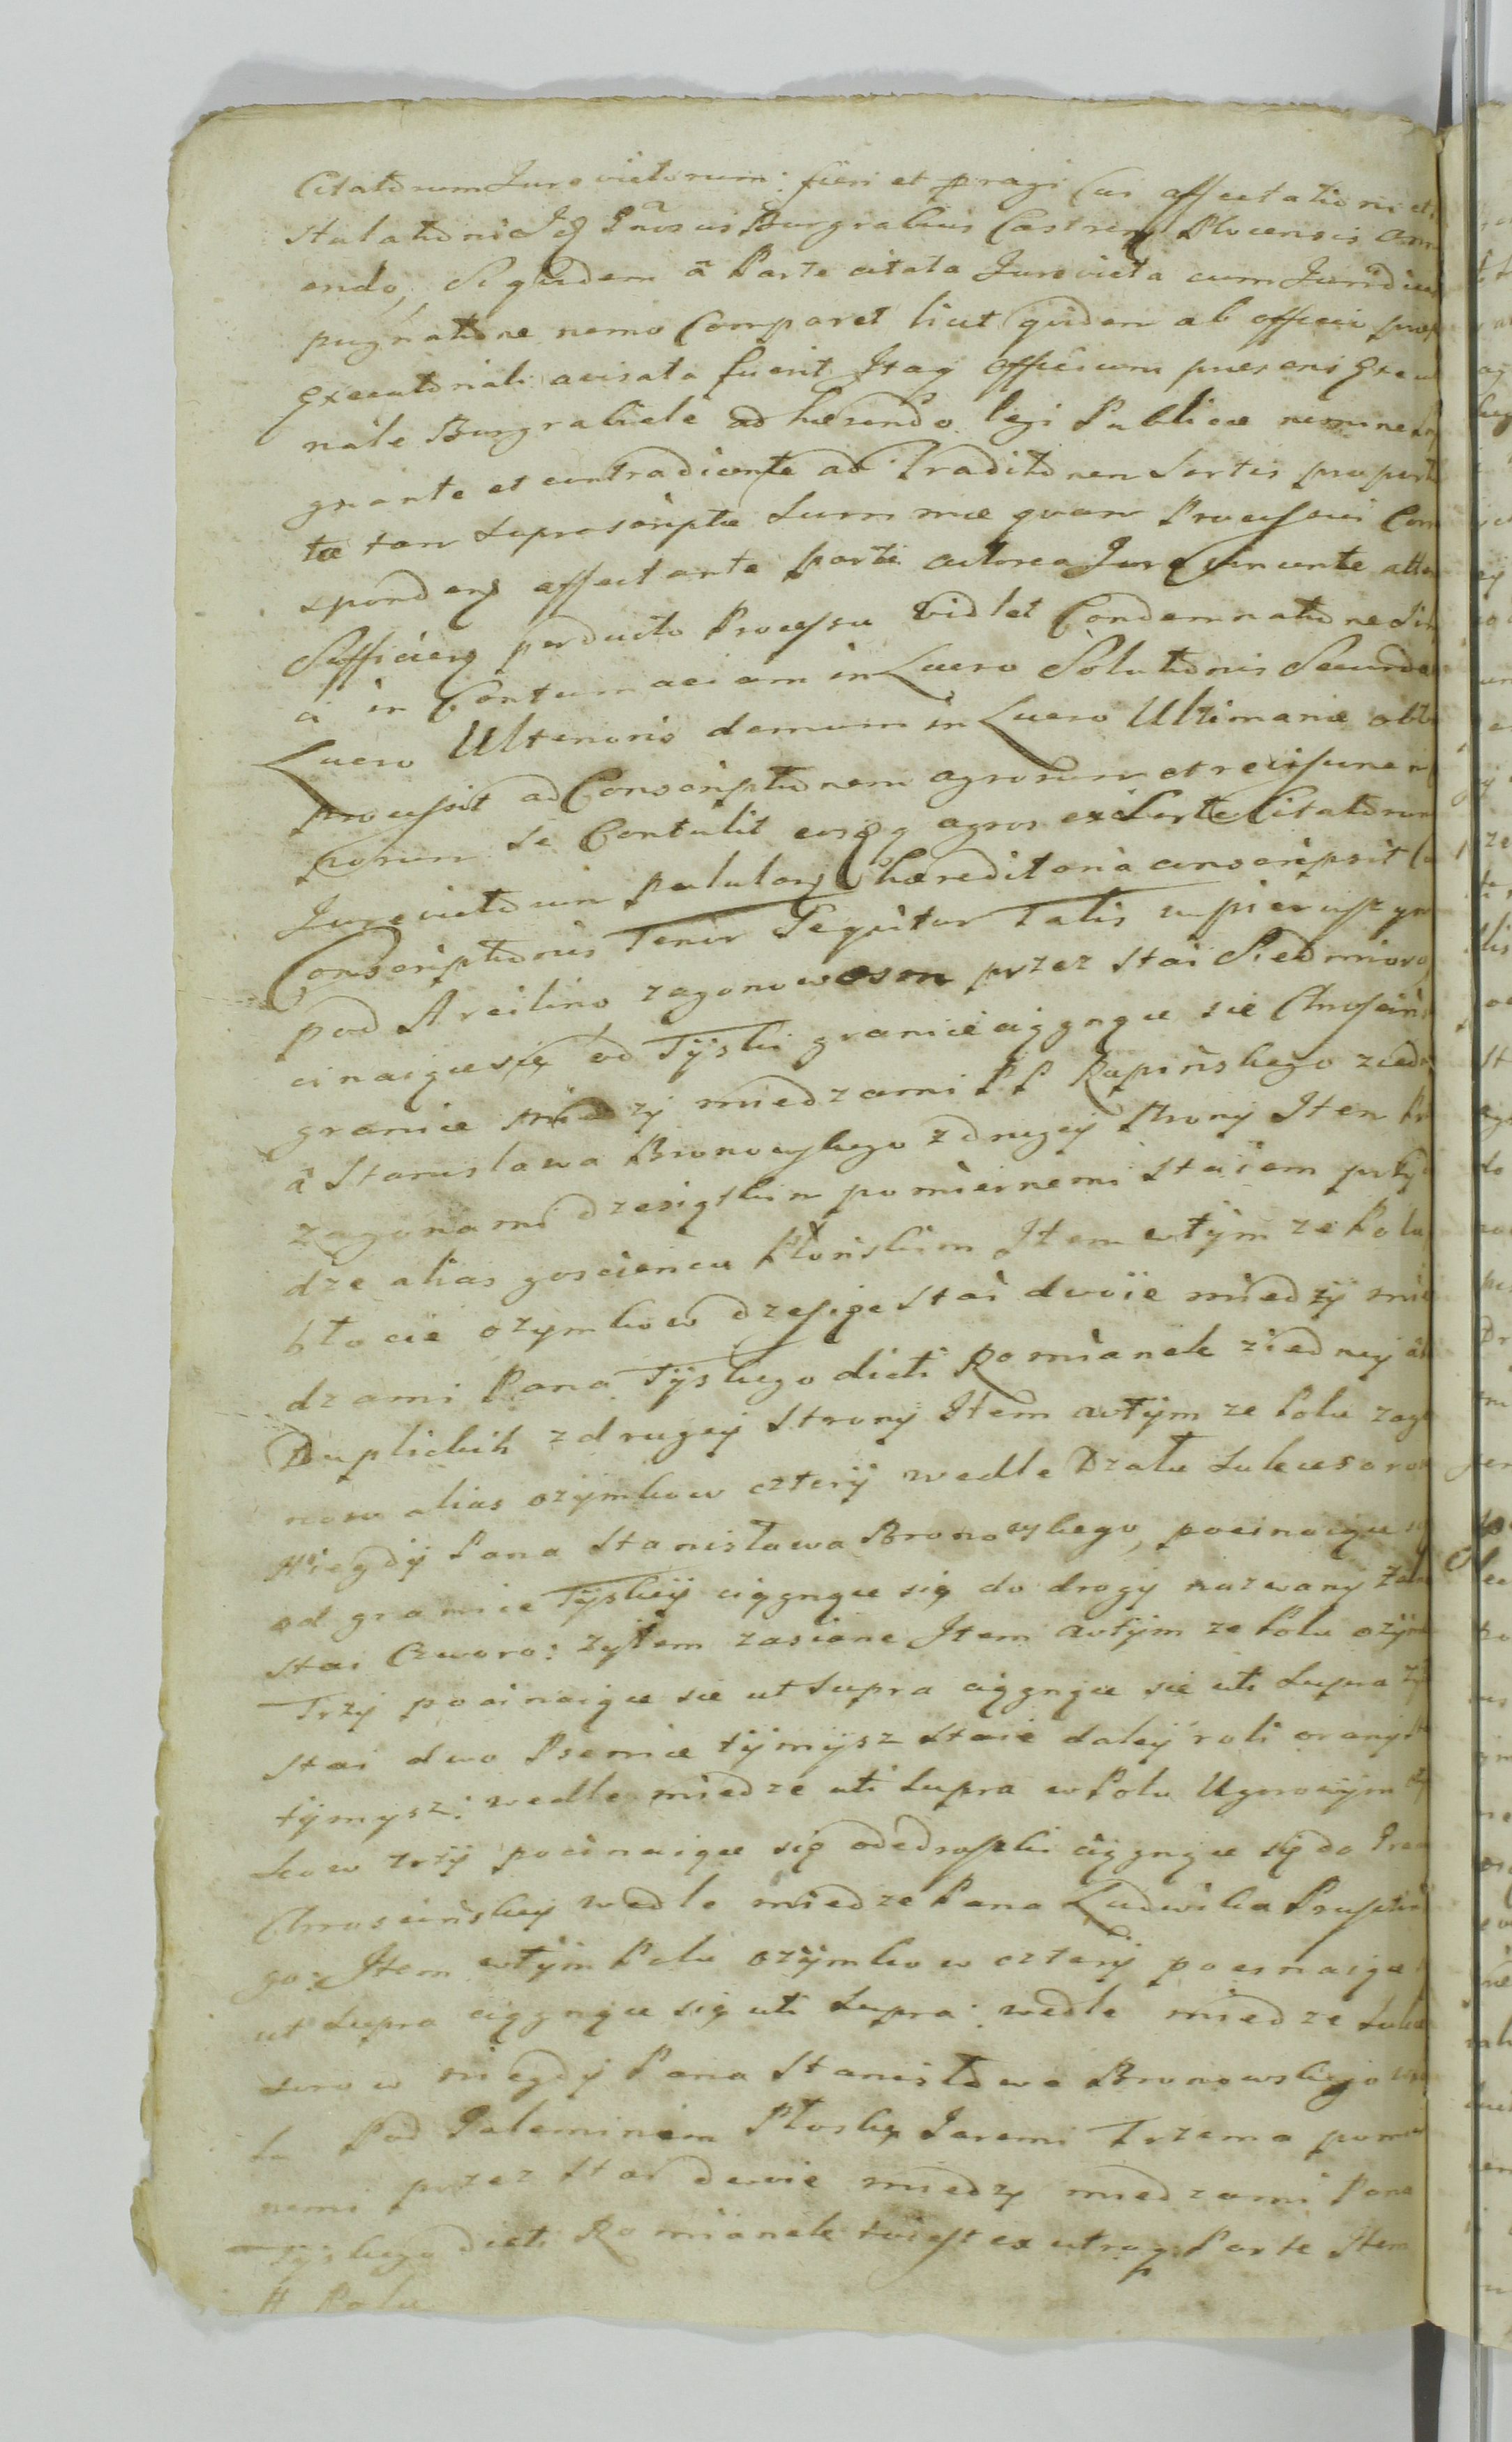 Citatorum Jurevictorum: fieri et peragi Cui affectationi et
stulationi Idem Gnosus Burgrabius Castren Plocensis ann
endo, Siquidem à Parte citata Jurevicta cum Juridica
pugnatione nemo Comparet licet quidem ab officio praes
Executoriali avisata fuerit Itaq officium praesens Execu
riale Burgrabiale adhaerendo legi Publicae nemine
gnante et contradicente ad Traditionem Sortis proport
tae tam Suprascriptae Summae quam Processui Corr
sponden affectante parte actorea Jurevincente atto
Sufficien perducto Processu Vidlet Condemnatione
a in Contumaciam in Lucro Solutionis Secunda
Lucro Ulterioris demum in Lucro Ultimariae
processit ad Conscriptionem agrorum et
porum se Contulit eosq agros ex Sorte Citatorum
Jurevictorum patulam haereditaria conscripsit
Conscriptionis Tenor Sequitur Talis w pierwszym
pod Arcilino zagonow osm przez stai Siedmioro
cinaiące się od Tÿski granice ciągnące sie Chroscins
granice między miedzami PP Rapińskego ziedn
à Stanisława Bronowskego z drugiÿ Stronÿ Item
zagonami dziesiątkim pomiernemi staiem przÿ
dze alias goscieńcu Płońskim Item w tÿm ze Polu
błocie ozymkow dziesięc stai dwoie międzÿ mie
dzami Pana Tÿskego dicti Romianek ziedneÿ
Duplickich z drugeÿ Stronÿ Item w tÿm ze Polu zago
now alias ozÿmkow cztery wedle Działu Sukcesorow
Niegdÿ Pana Stanisława Bronowskego, pocinaiące
od granice Tÿskiÿ ciągnące się do drogi nazwanÿ
stai Czworo: zytem zasiane Item w tÿm ze Polu ozÿm
Trzÿ pocinaiące sie ut supra ciągnące sie uti supra
stai dwo Psenice tÿmÿsz staie daleÿ roli oranÿ
tÿmysz: wedle miedze uti supra w Polu Ugorowÿm
kow trzÿ pocinaiące się od drozki ciągnące się do Gran
Chroscińskiÿ wedle miedze Pana Ludwika
go: Item w tÿm Polu ozÿmkow czterÿ pocinaiące
ut supra ciągnące się uti supra: wedle miedze Sukce
sorow niegdÿ Pana Stanisława Bronowskiego
Pod Galominem Płoską Jaremi Trzema pomier
nemi przez stai dwoie międzÿ miedzami Pana
Tÿskego dicti Romianek tuiest ex utraq Parte Item
W Polu